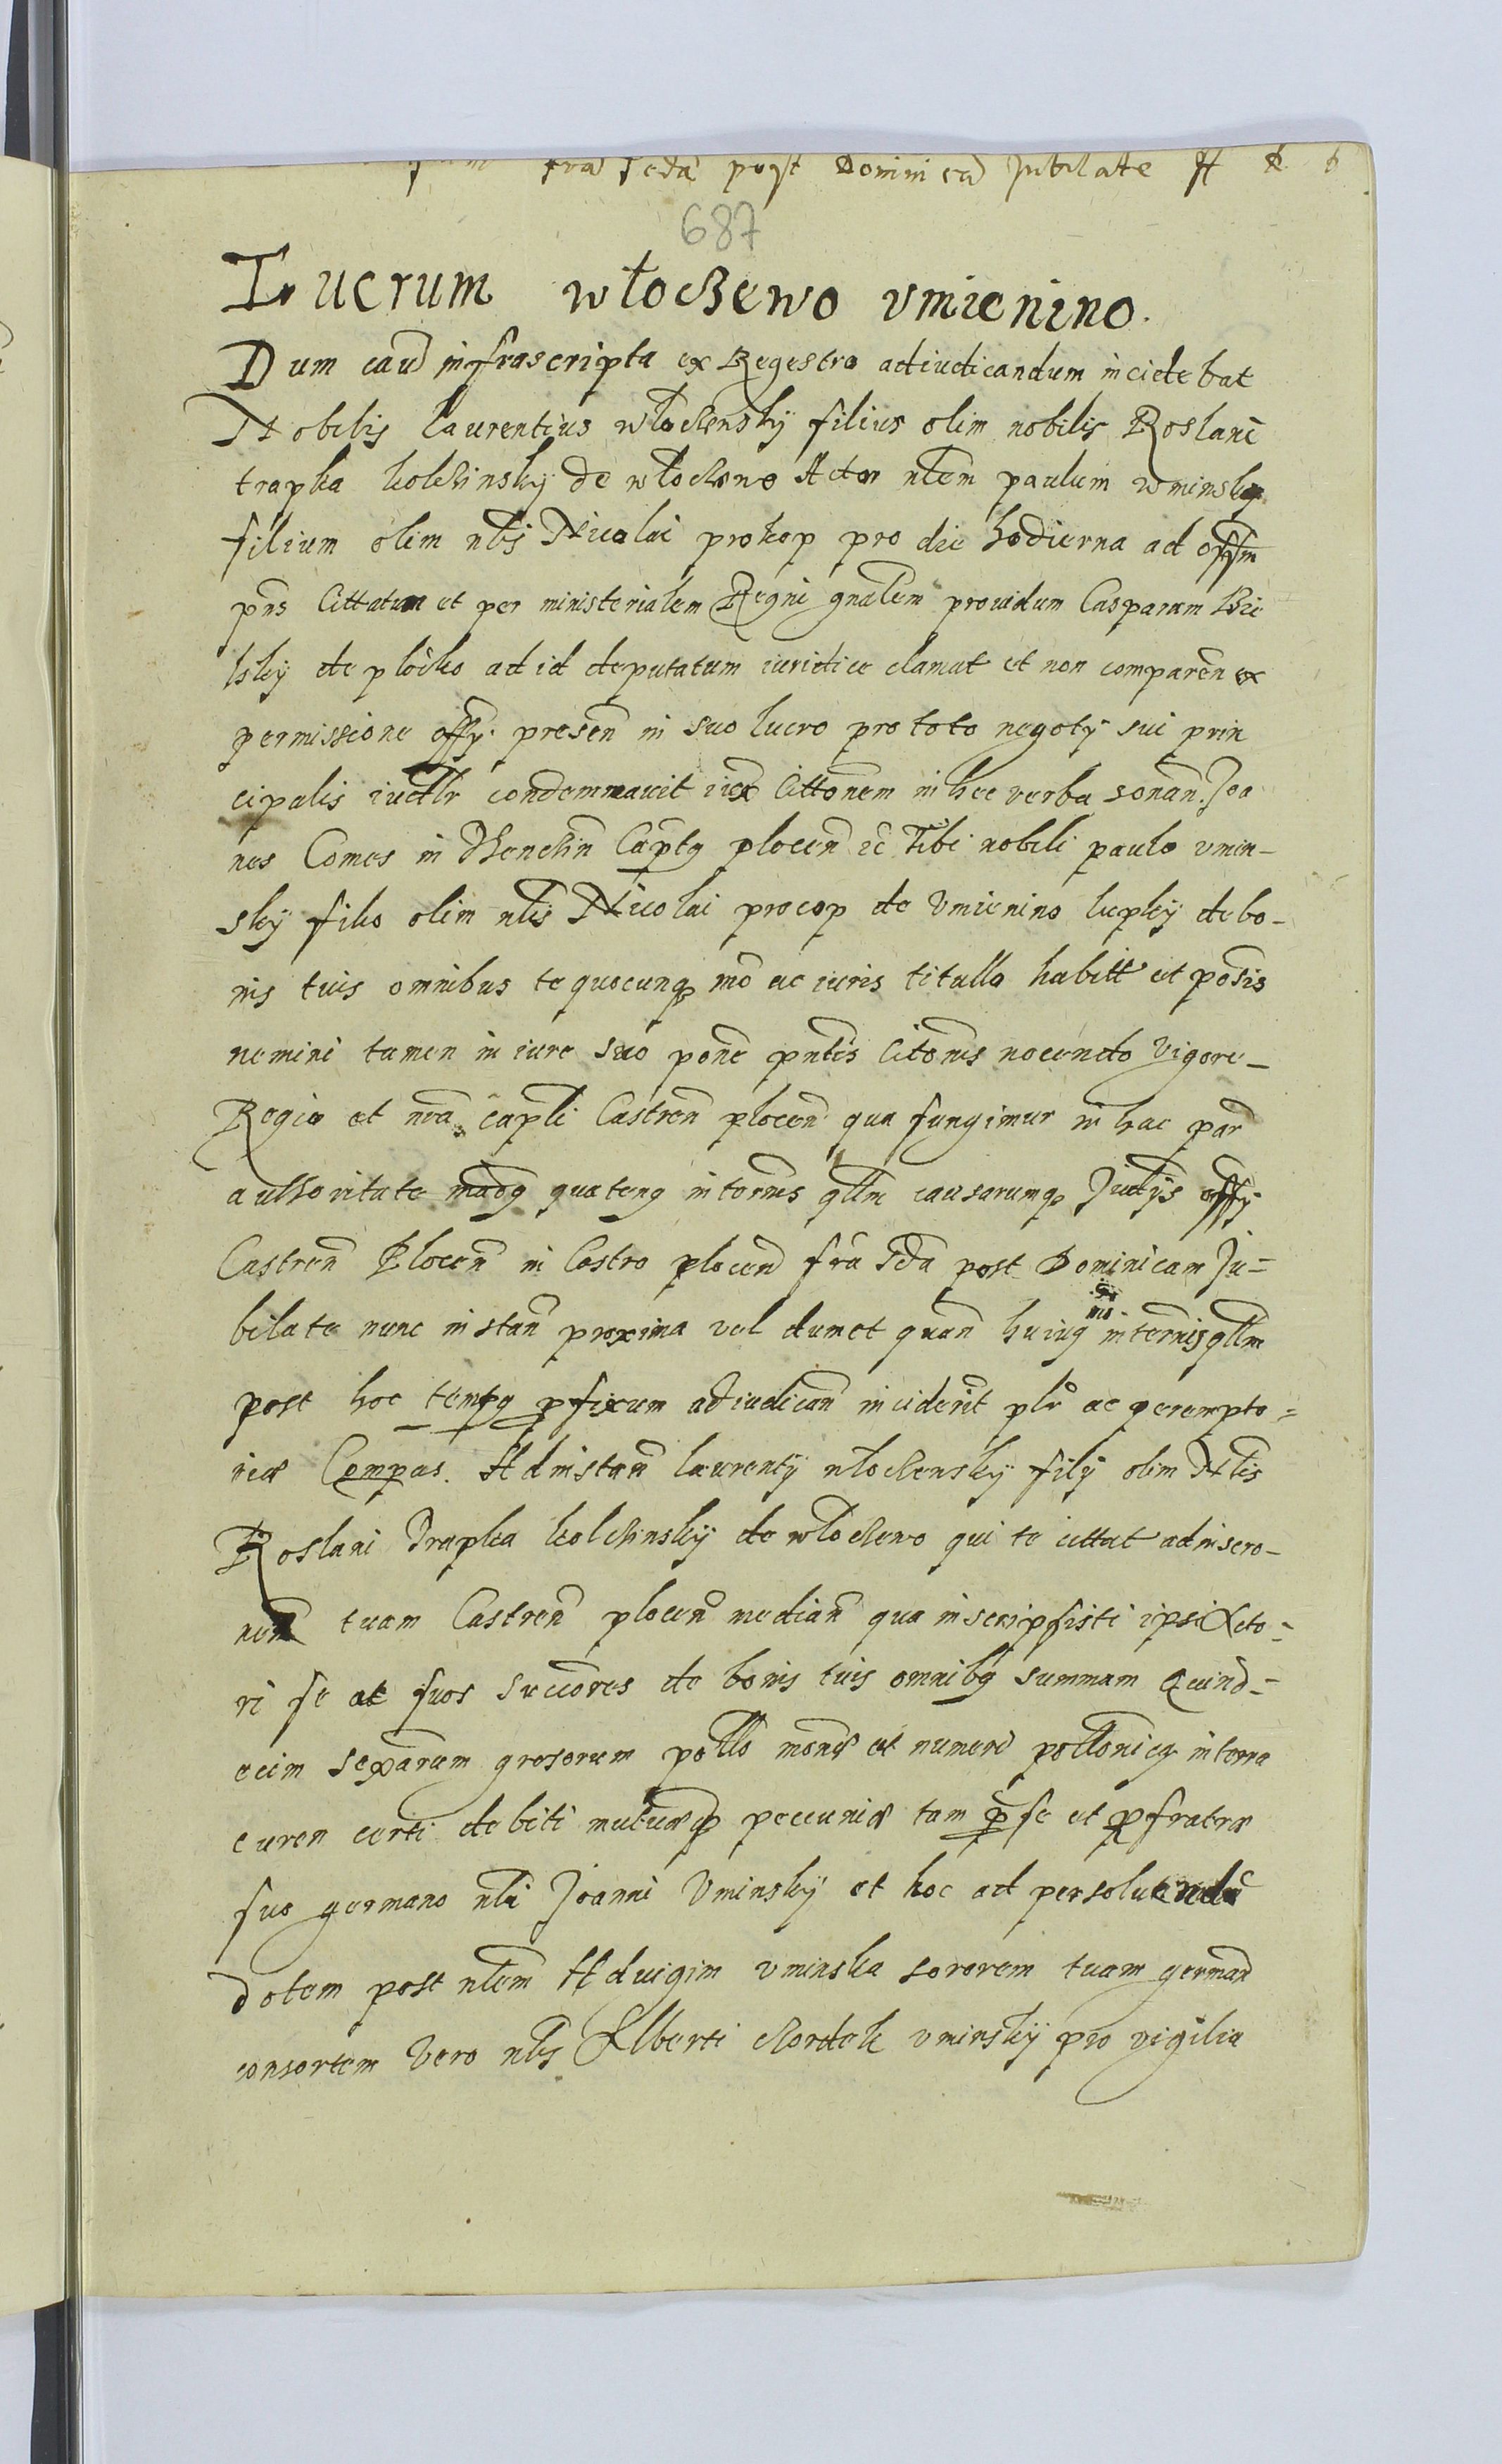 fra scda post Dominica Jubilate
687
Lucrum włoczewo vmienino.
Dum cau infrascripta ex Regestro adiudicandum incidebat
Nobilis Laurentius włoczensky filius olim nobilis Roslani
trapka kolczinsky de włoczewo Actor nlem paulum vminsky
filium olim nlis Nicolai prokop pro die hodierna ad offm
pns Cittatum et per ministerialem Regni gnalem prouidum Casparum Bie
lsky de plocko ad id deputatum iuridice clamat et non comparen ex
permissione offy presen in suo lucro pro toto negoty sui prin
cipalis iudlr condemnauit iux Cittonem in hec verba sonan. Joa
nes Comes in Thenczin Captq plocen zc Tibi nobili paulo vmin-
sky filio olim nlis Nicolai procop de Vmienino lupky de bo-
nis tuis omnibus te quocunq mo ac iuris titullo habitt et possis
nemini tamen in iure suo pone pntis Citonis nocendo Vigore-
Regia et nra capli Castren plocen qua fungimur in hac par
authoritate madq quatenq in tornis qllm causarumq Judys offy
Castren Plocen in Castro plocen fra Sda post Dominicam Ju=
bilate nunc instan proxima vel dum et quan huiuq in ternis qllm
post hoc tempq pfixum adiudican inciderit plr ac perempto=
rie Compas. Ad instan laurenty włoczensky fily olim Nlis
Roslani Trapka kolczinsky de włoczewo qui te cittat ad inscro-
nem tuam Castren plocen median qua inscripsisti ipsi Acto=
ri se et suos succores de bonis tuis omnibq summam Quind=
ecim sexaram grosorum pollo monet et numeri pollonicq in terra
curen certi debiti mutueq pecuniæ tam p se et p fratre
suo germano nli Joanni Vminsky et hoc ad persoluendu
dotem post nlem Hduigim vminska sororem tuam german
consortem vero nlis Alberti czordek vminsky pro vigilia